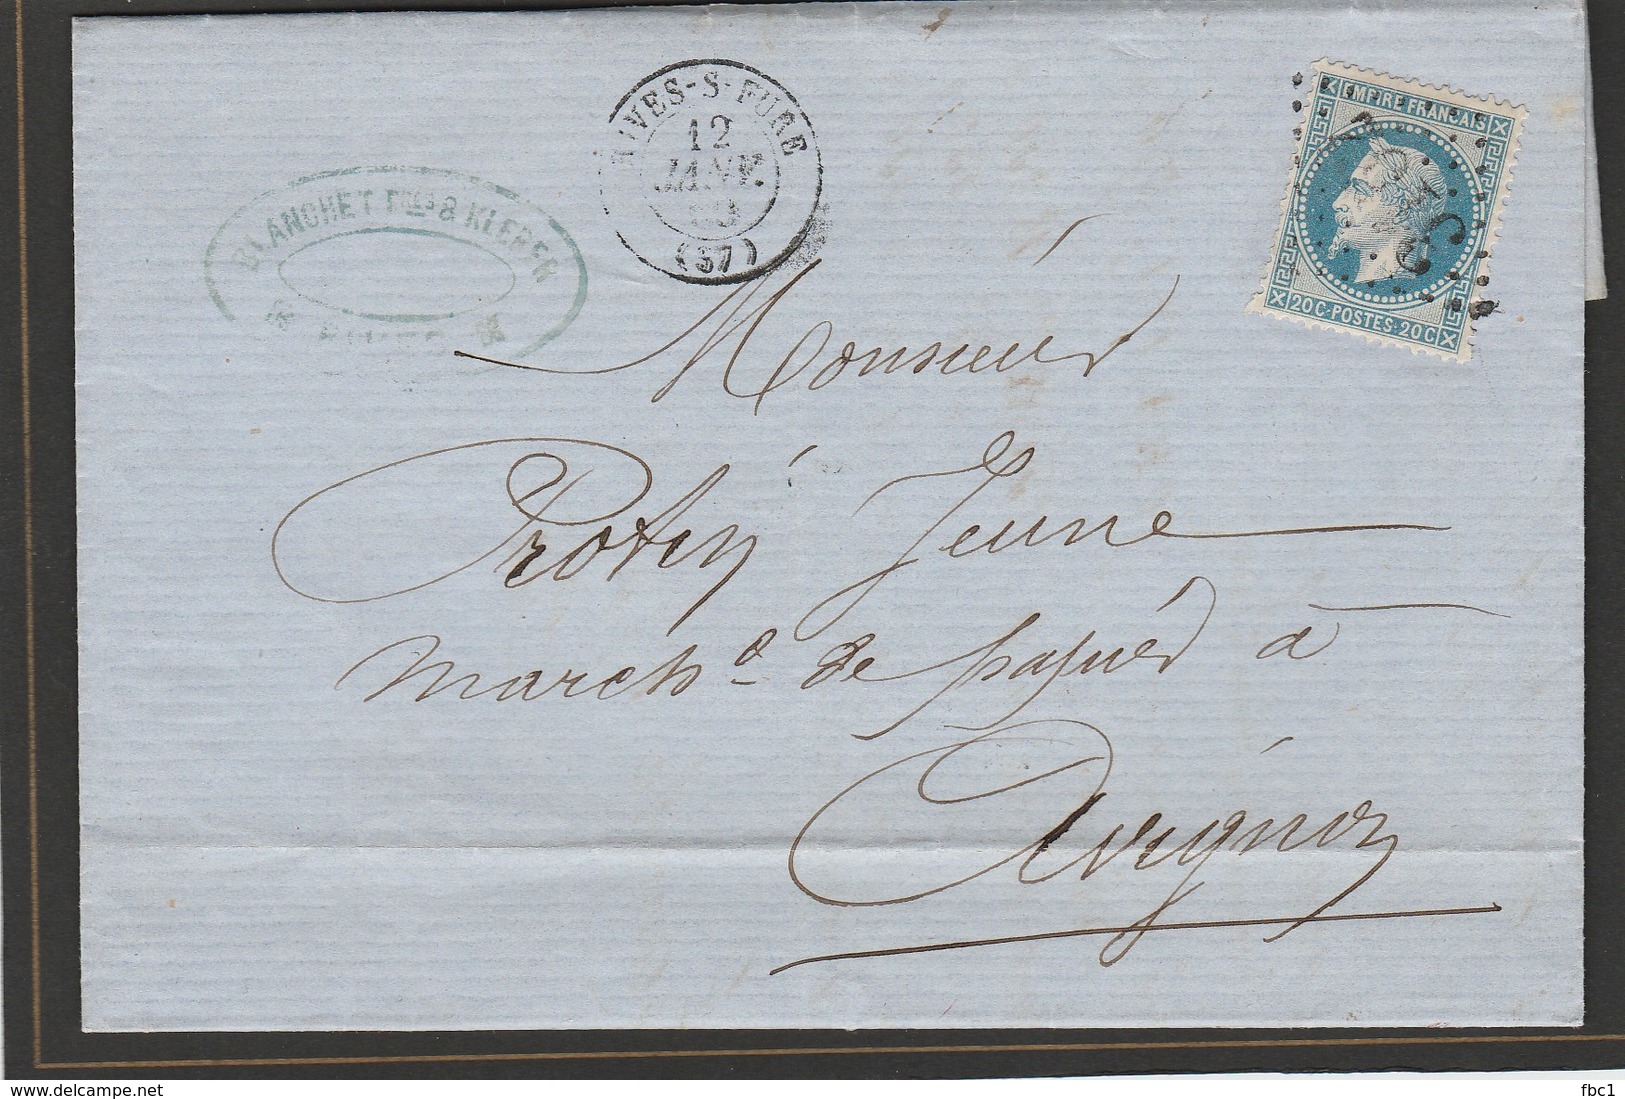 RIVES-S-FURE
12
JANV.
(37)
BLANCHET FILS & KLEBER
RIVES
EMPIRE FRANÇAIS
20 C · POSTES · 20 C
Monsieur
Jeune
March.d de papiers à
Avignon
www.delcampe.net
fbc1